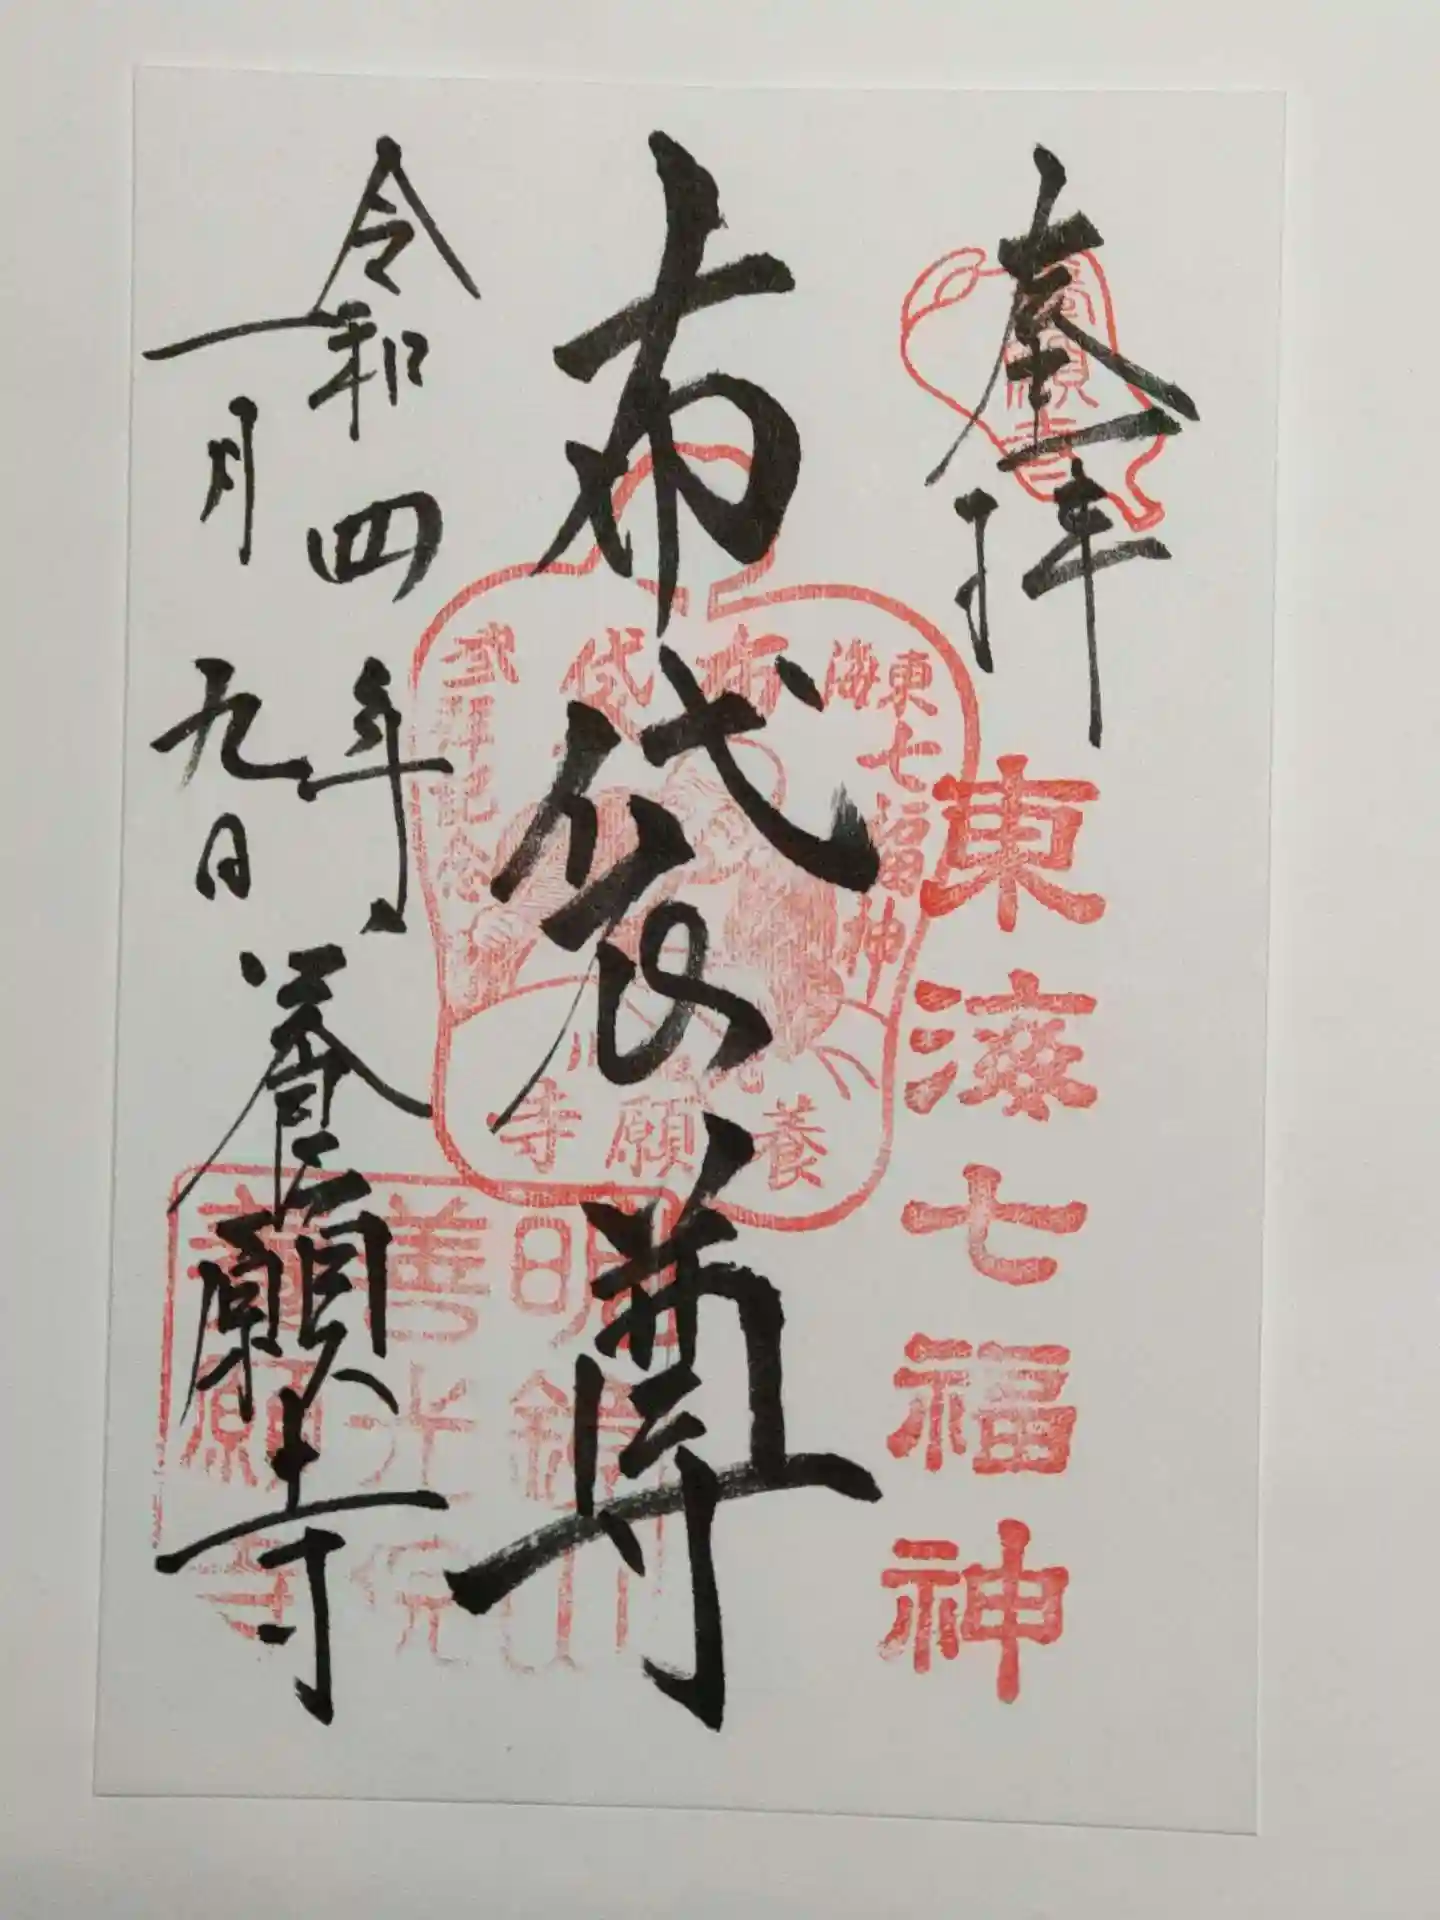 奉拝
東海七福神
布袋尊
令和四年
一月九日
養願寺
養願寺
東海七福神
布袋
記念
養願寺
明鏡山
善光院
養願寺